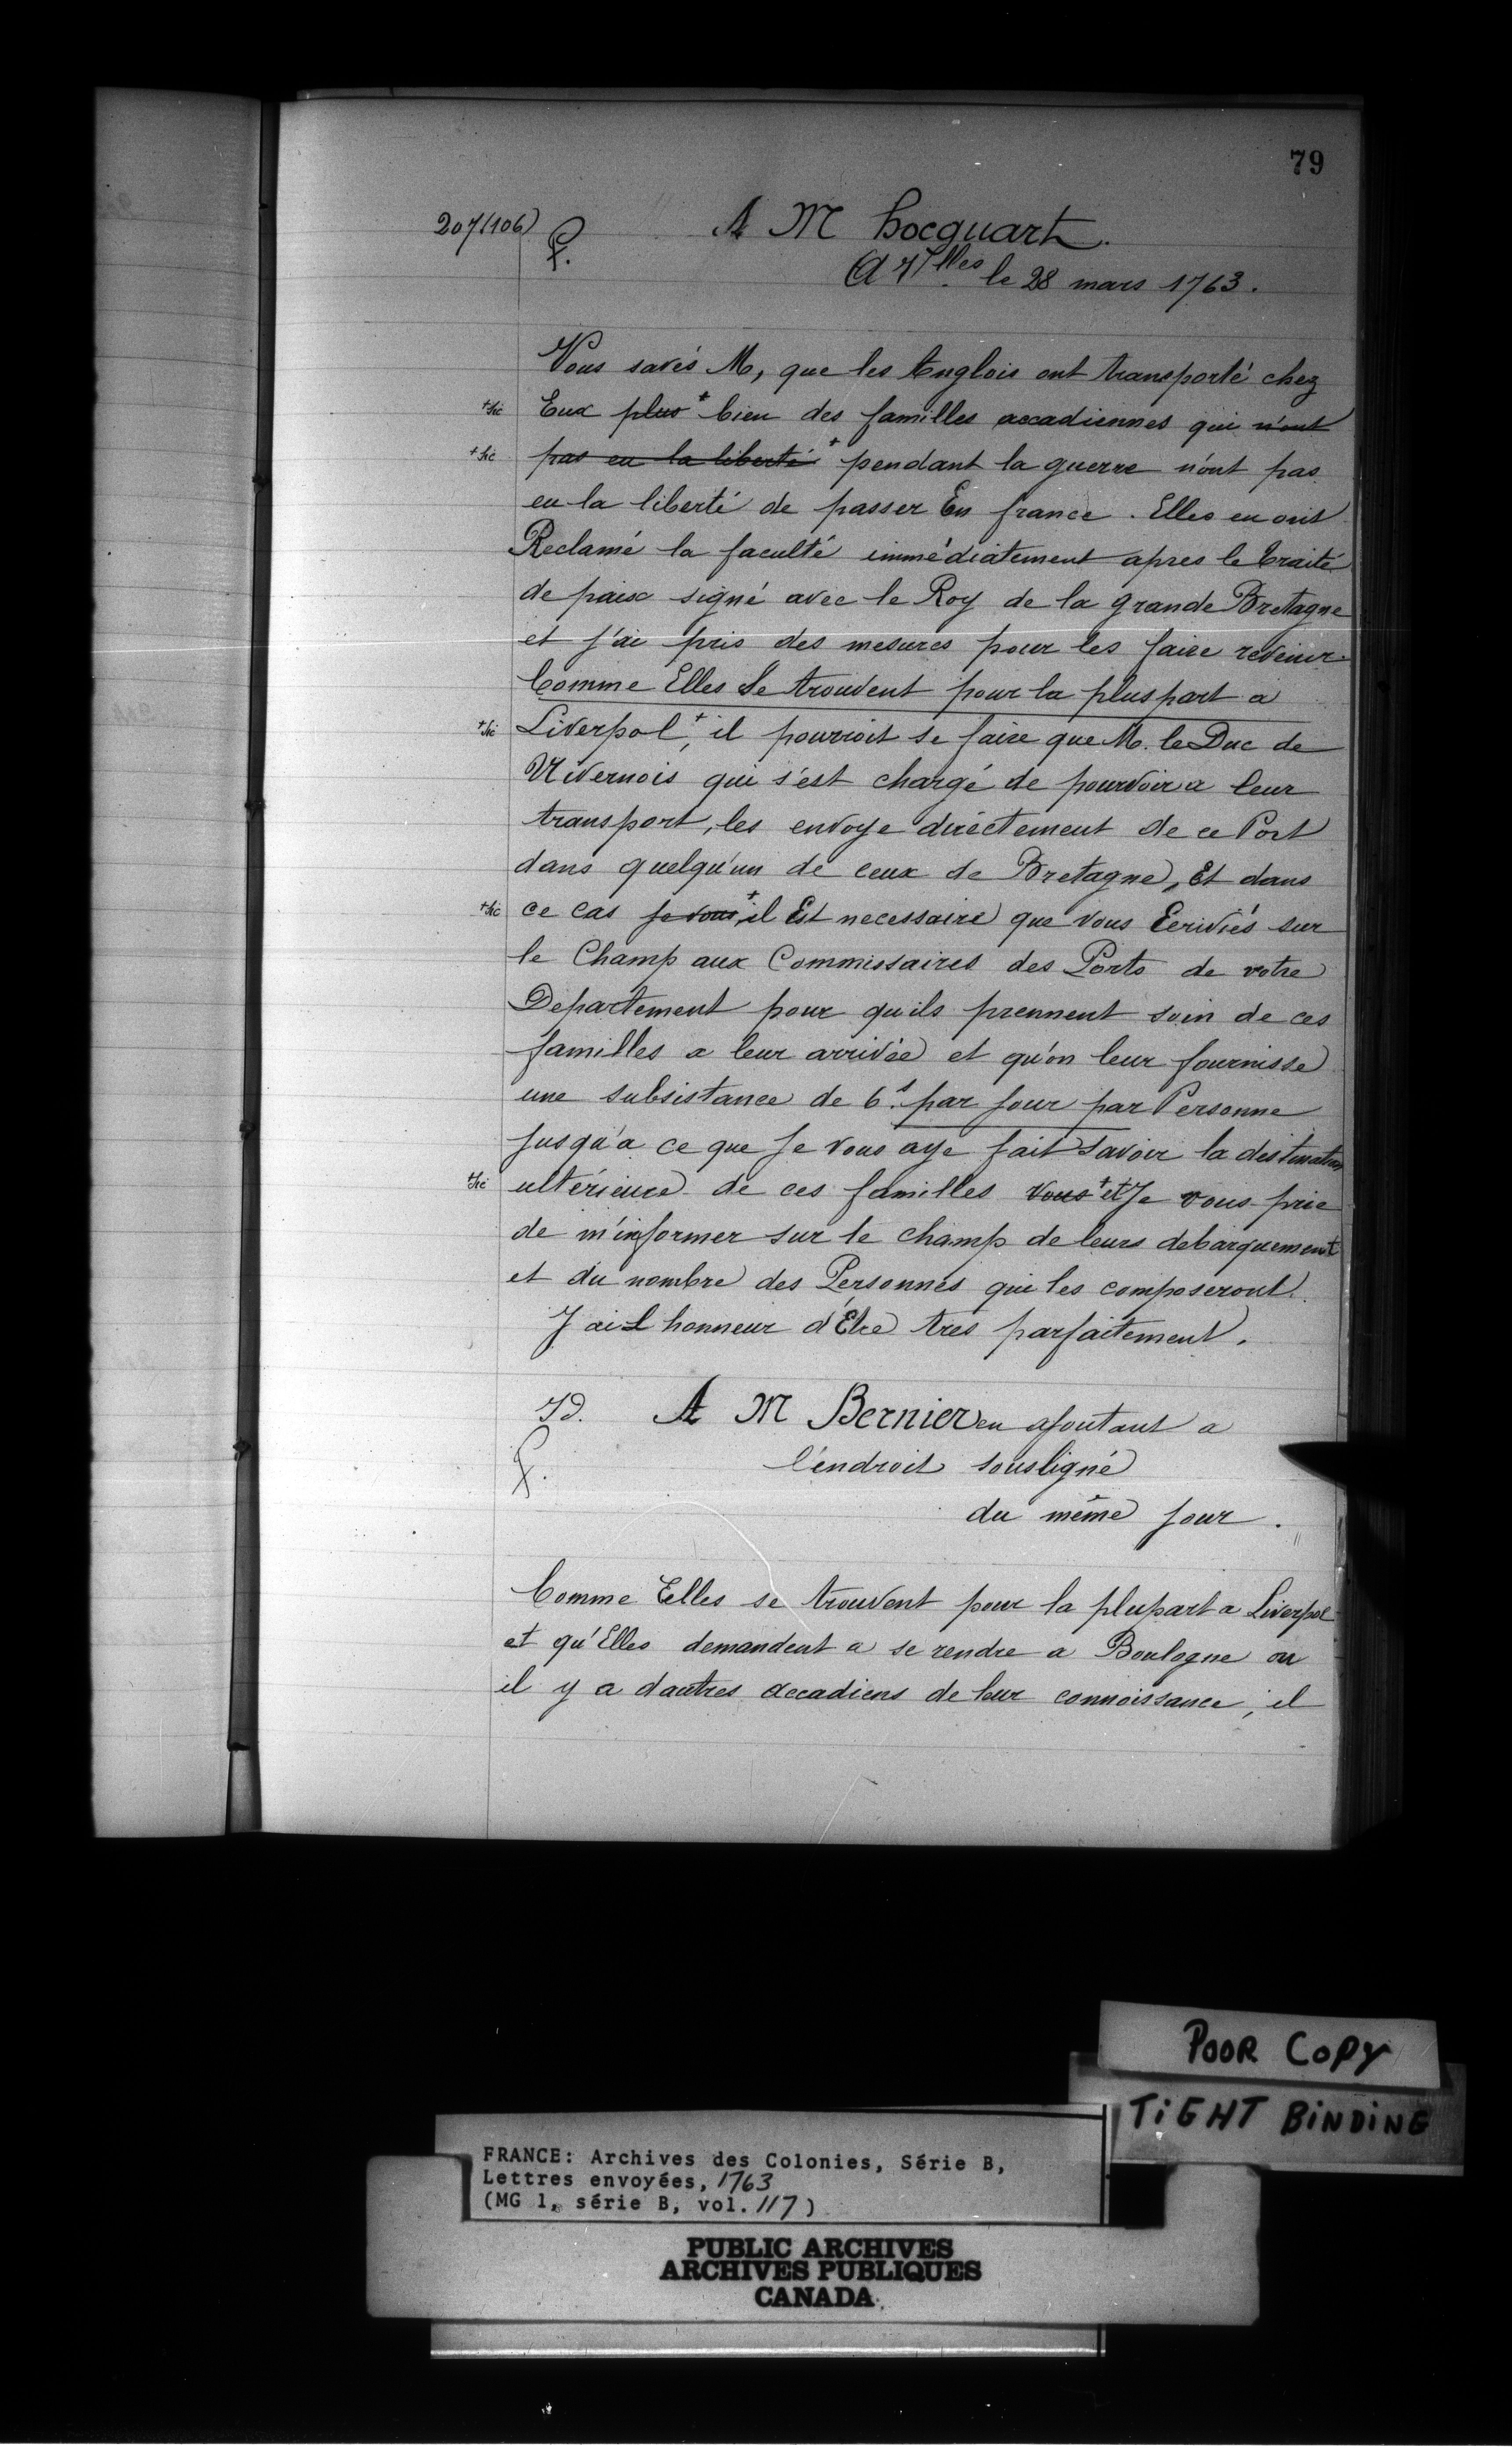 79
207 (106)
P.
A M hocquart.
A Vlles le 28 mars 1763.
Vous savés M, que les Englois ont transporté chez
+sic Eux plus + bien des familles accadiennes qui n'ont
+sic pas eu la liberté + pendant la guerre n'ont pas
eu la liberté de passer En france. Elles en ont
Reclamé la faculté immédiatement apres le traité
de paix signé avec le Roy de la grande Bretagne
et j'ai pris des mesures pour les faire revenir.
Comme Elles Se trouvent pour la pluspart a
+sic Liverpol +, il pourroit se faire que M. le Duc de
Nivernois qui s'est chargé de pourvoir a leur
transport, les envoye directement de ce Port
dans quelqu'un de ceux de Bretagne, Et dans
+sic ce cas Je vous + il Est necessaire que vous Ecriviés sur
le Champ aux Commissaires des Ports de votre
Departement pour qu'ils prennent soin de ces
familles a leur arrivée et qu'on leur fournisse
une subsistance de 6s. par jour par Personne
Jusqu'a ce que Je vous aye fait Savoir la destination
+sic ultérieure de ces familles vous + et Je vous prie
de m'informer sur le champ de leurs debarquement
et du nombre des Personnes qui les composeront.
J'ai L honneur d'Etre tres parfaitement.
Id. A M Bernier en ajoutant a
P. l'endroit sousligné
du même jour.
Comme Elles se trouvent pour la plupart a Liverpol
et qu'Elles demandent a se rendre a Boulogne ou
il y a dautres accadiens de leur connoissance, il
POOR COPY
TIGHT BINDING
FRANCE: Archives des Colonies, Série B,
Lettres envoyées, 1763
(MG 1, série B, vol. 117)
PUBLIC ARCHIVES
ARCHIVES PUBLIQUES
CANADA